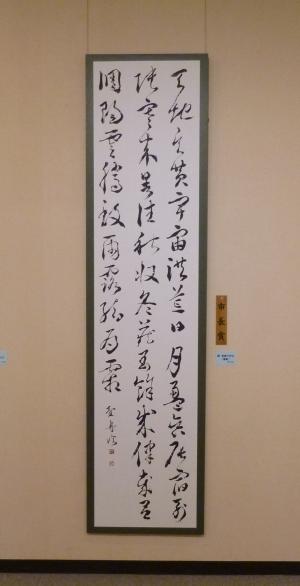 天地玄黄宇宙洪荒日月盈昃辰宿列
張寒来暑往秋收冬蔵閏餘成歳律呂
調陽雲騰致雨露結為霜
市長賞